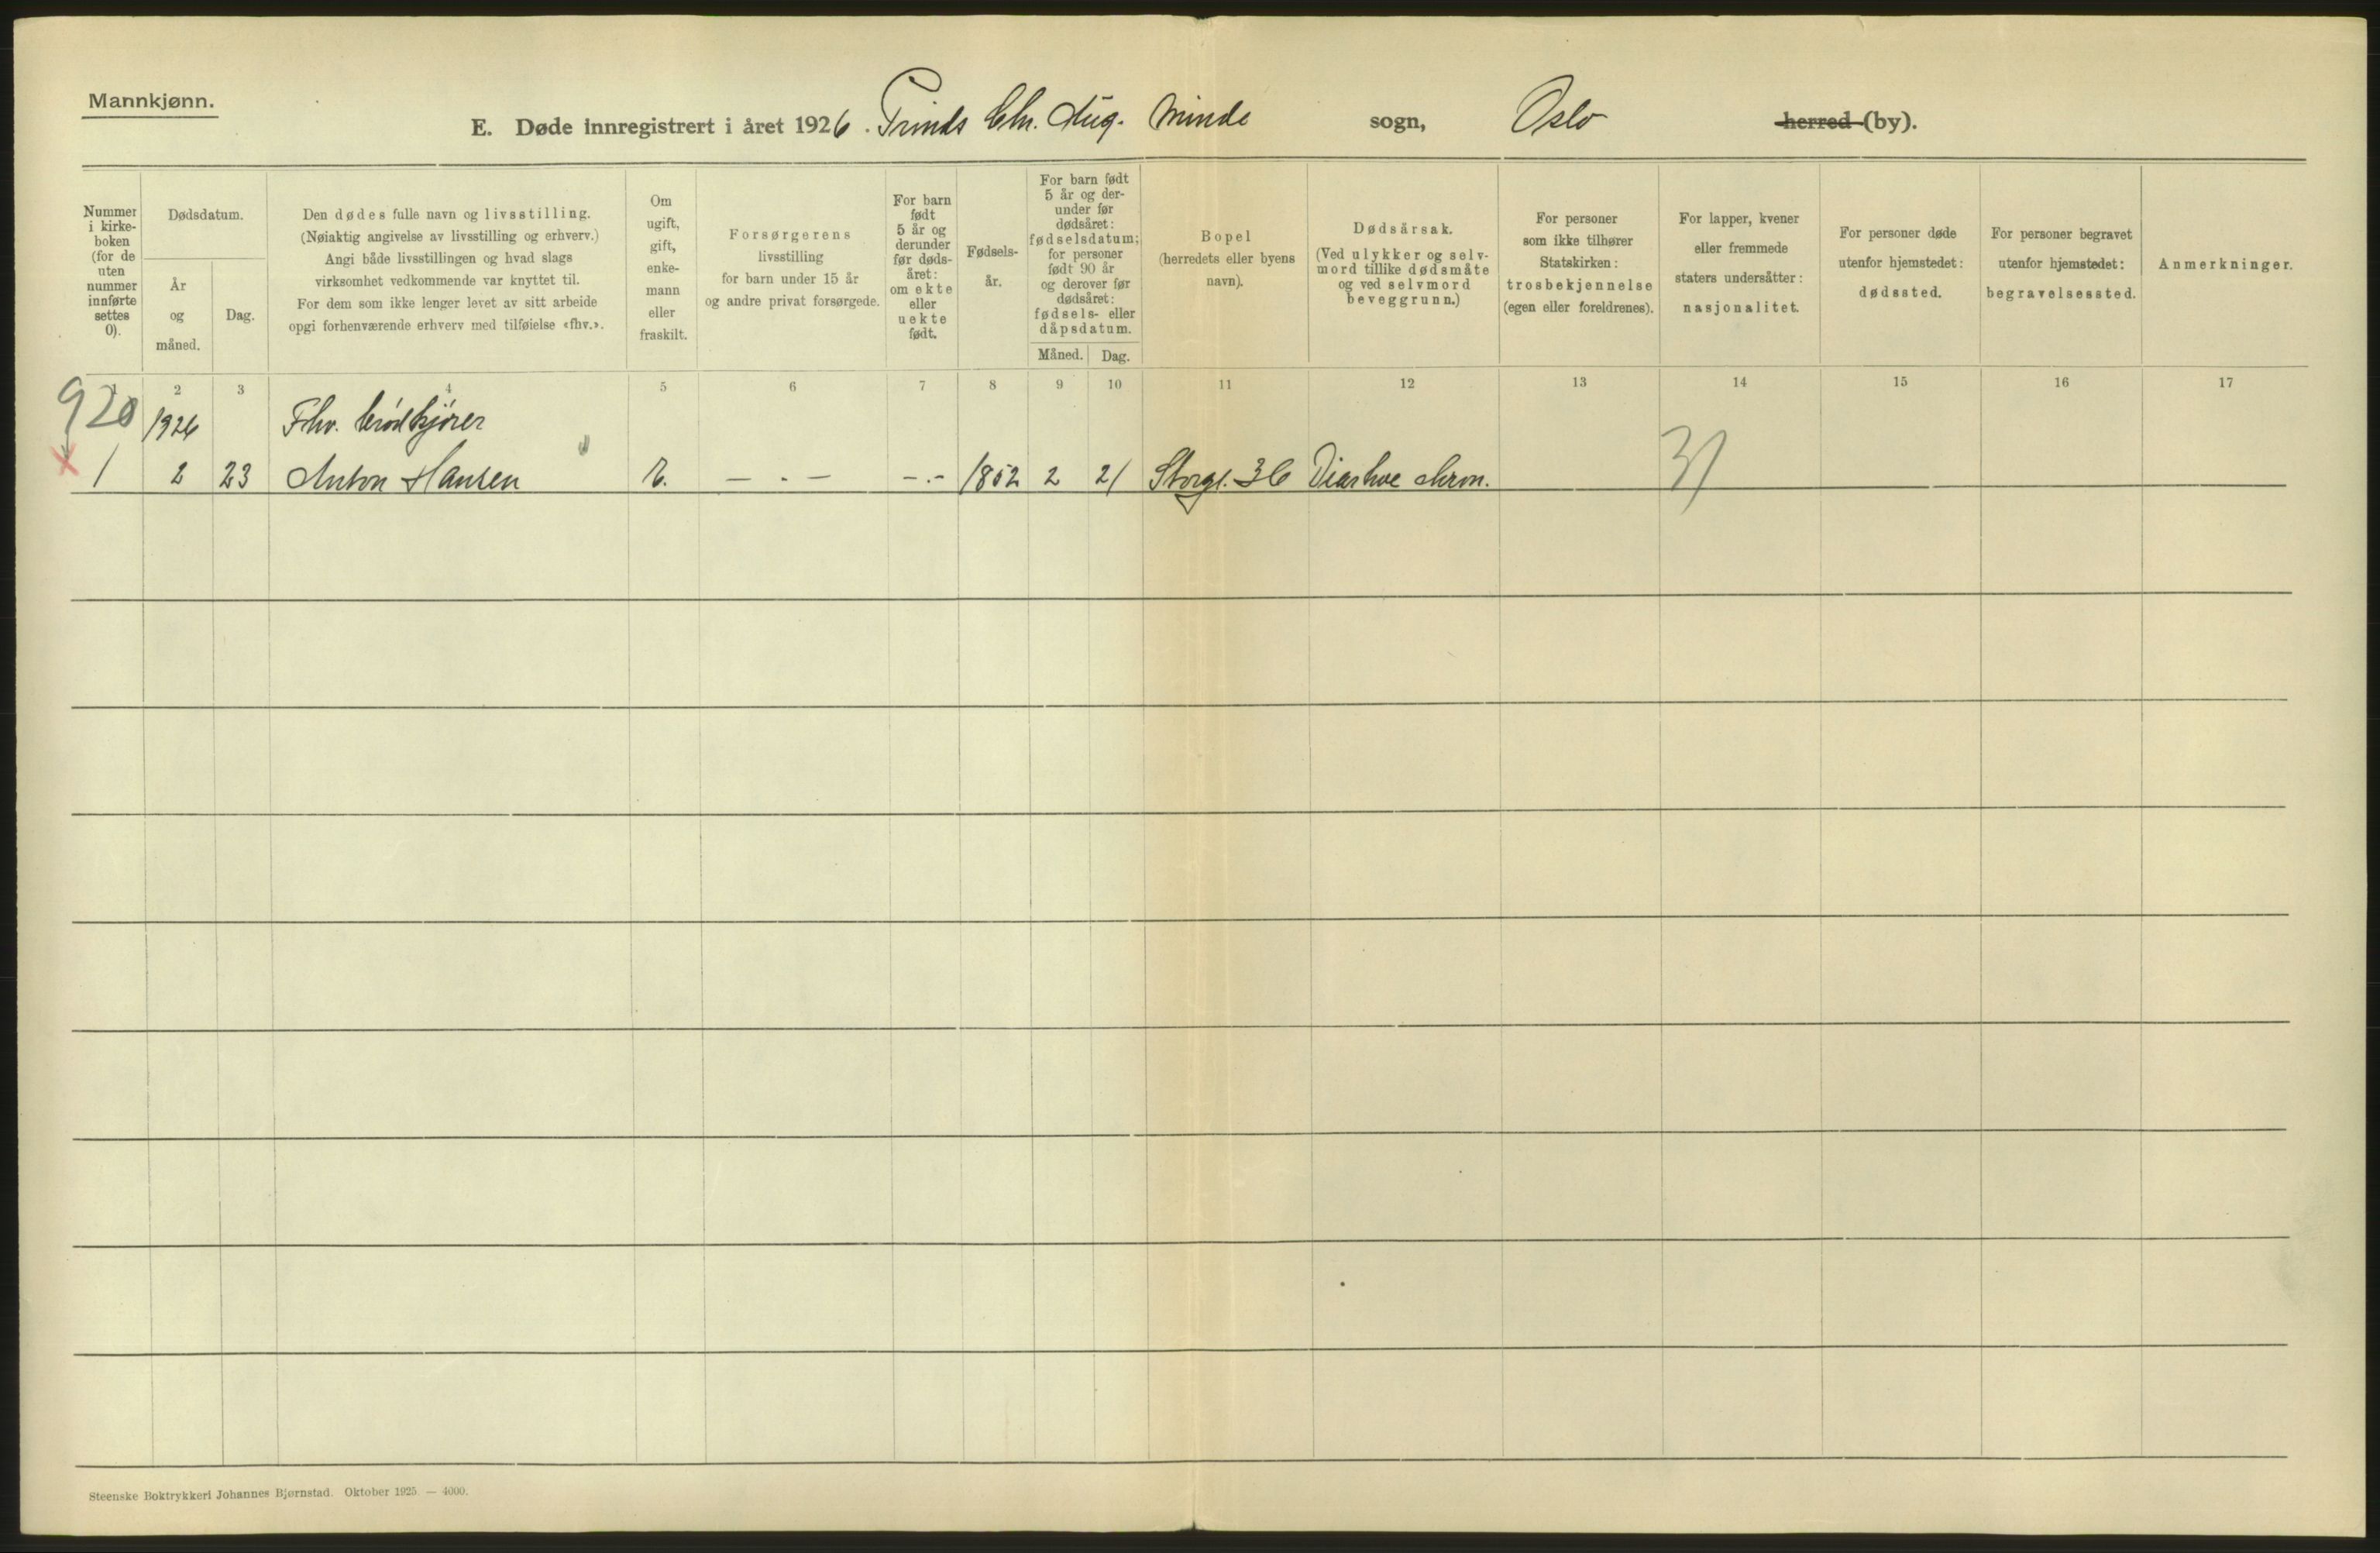 Mannkjønn.
E. Døde innregistrert i året 1926. Prinds Chr. Aug. Minde sogn, Oslo herred (by).
Nummer
i kirke-
boken
(for de
uten
nummer
innførte
settes
0).
Dødsdatum.
År
og
måned.
Dag.
Den dødes fulle navn og livsstilling.
(Nøiaktig angivelse av livsstilling og erhverv.)
Angi både livsstillingen og hvad slags
virksomhet vedkommende var knyttet til.
For dem som ikke lenger levet av sitt arbeide
opgi forhenværende erhverv med tilføielse «fhv.».
Om
ugift,
gift,
enke-
mann
eller
fraskilt.
Forsørgerens
livsstilling
for barn under 15 år
og andre privat forsørgede.
For barn
født
5 år og
derunder
før døds-
året:
om ekte
eller
uekte
født.
Fødsels-
år.
For barn født
5 år og der-
under før
dødsåret:
fødselsdatum;
for personer
født 90 år
og derover før
dødsåret:
fødsels- eller
dåpsdatum.
Måned. Dag.
Bopel
(herredets eller byens
navn).
Dødsårsak.
(Ved ulykker og selv-
mord tillike dødsmåte
og ved selvmord
beveggrunn.)
For personer
som ikke tilhører
Statskirken:
trosbekjennelse
(egen eller foreldrenes).
For lapper, kvener
eller fremmede
staters undersåtter:
nasjonalitet.
For personer døde
utenfor hjemstedet:
dødssted.
For personer begravet
utenfor hjemstedet:
begravelsessted.
Anmerkninger.
2 3 4 5 6 7 8 9 10 11 12 13 14 15 16 17
920 1926 Fhv. brødkjører
1 2 23 Anton Hansen — . — - . - 1852 2 21 Storgt. 36 chron. 31
Steenske Boktrykkeri Johannes Bjørnstad. Oktober 1925. — 4000.